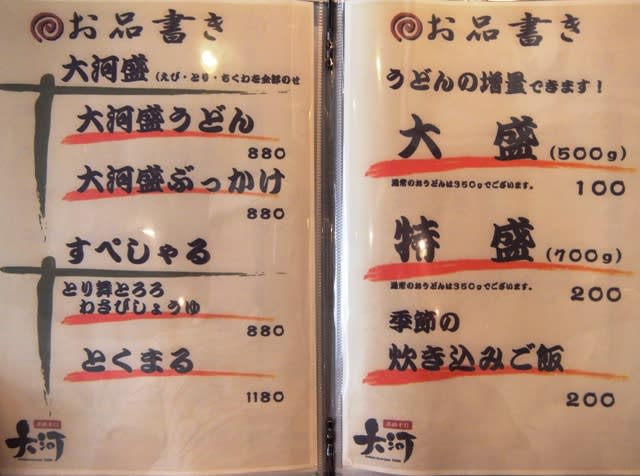 お品書き
大河盛(えび・とり・ちくわを全部のせ
大河盛うどん
880
大河盛ぶっかけ
880
すぺしゃる
とり舞とろろ
わさびしょうゆ
880
とくまる
1180
大河
お品書き
うどんの増量できます!
大盛(500g)
通常のおうどんは350gでございます。
100
特盛(700g)
通常のおうどんは350gでございます。
200
季節の
炊き込みご飯
200
大河